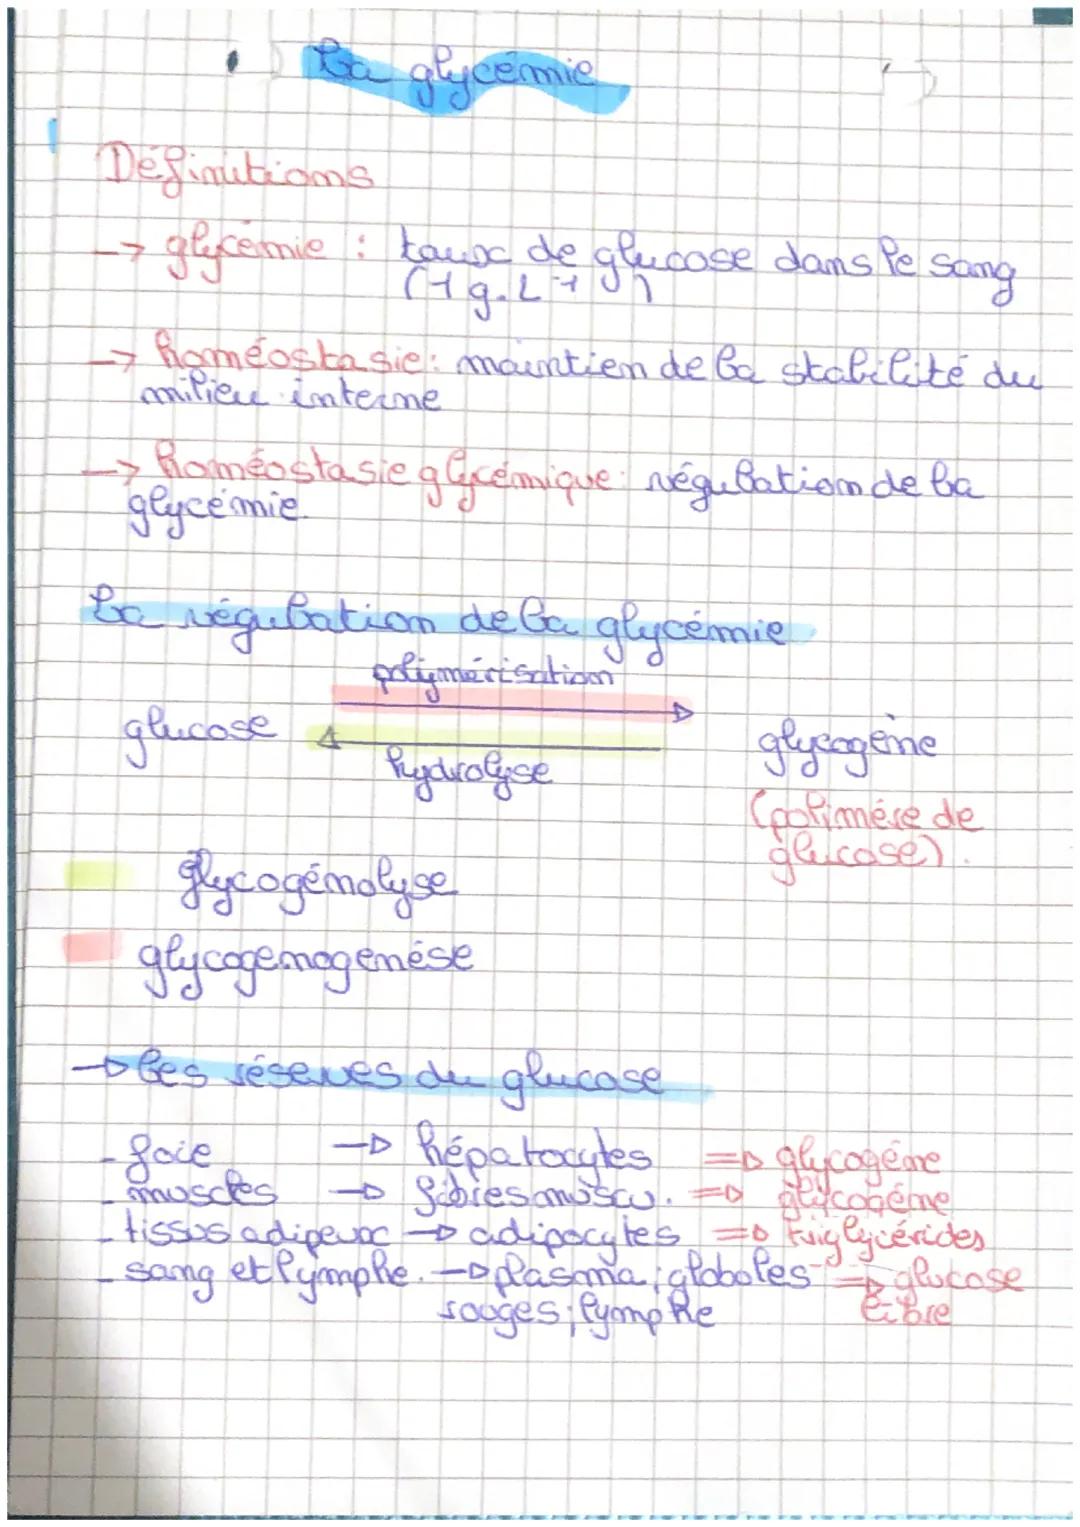 La glycémie
Définitions
-> glycémie : taux de glucose dans le sang
(1 g.L-1)
-> homéostasie : maintien de la stabilité du
milieu interne
-> homéostasie glycémique : régulation de la
glycémie.
La régulation de la glycémie
polymérisation
glucose glycogène
hydrolyse
(polimére de
glucose).
glycogénolyse
glycogenogenése
-> les réserves du glucose
- foie -> hépatocytes => glycogéne
- muscles -> fibres muscu. => glycogéne
- tissus adipeux -> adipocytes => triglycérides
- sang et lymphe. -> plasma ; globules => glucose
rouges ; lymphe libre